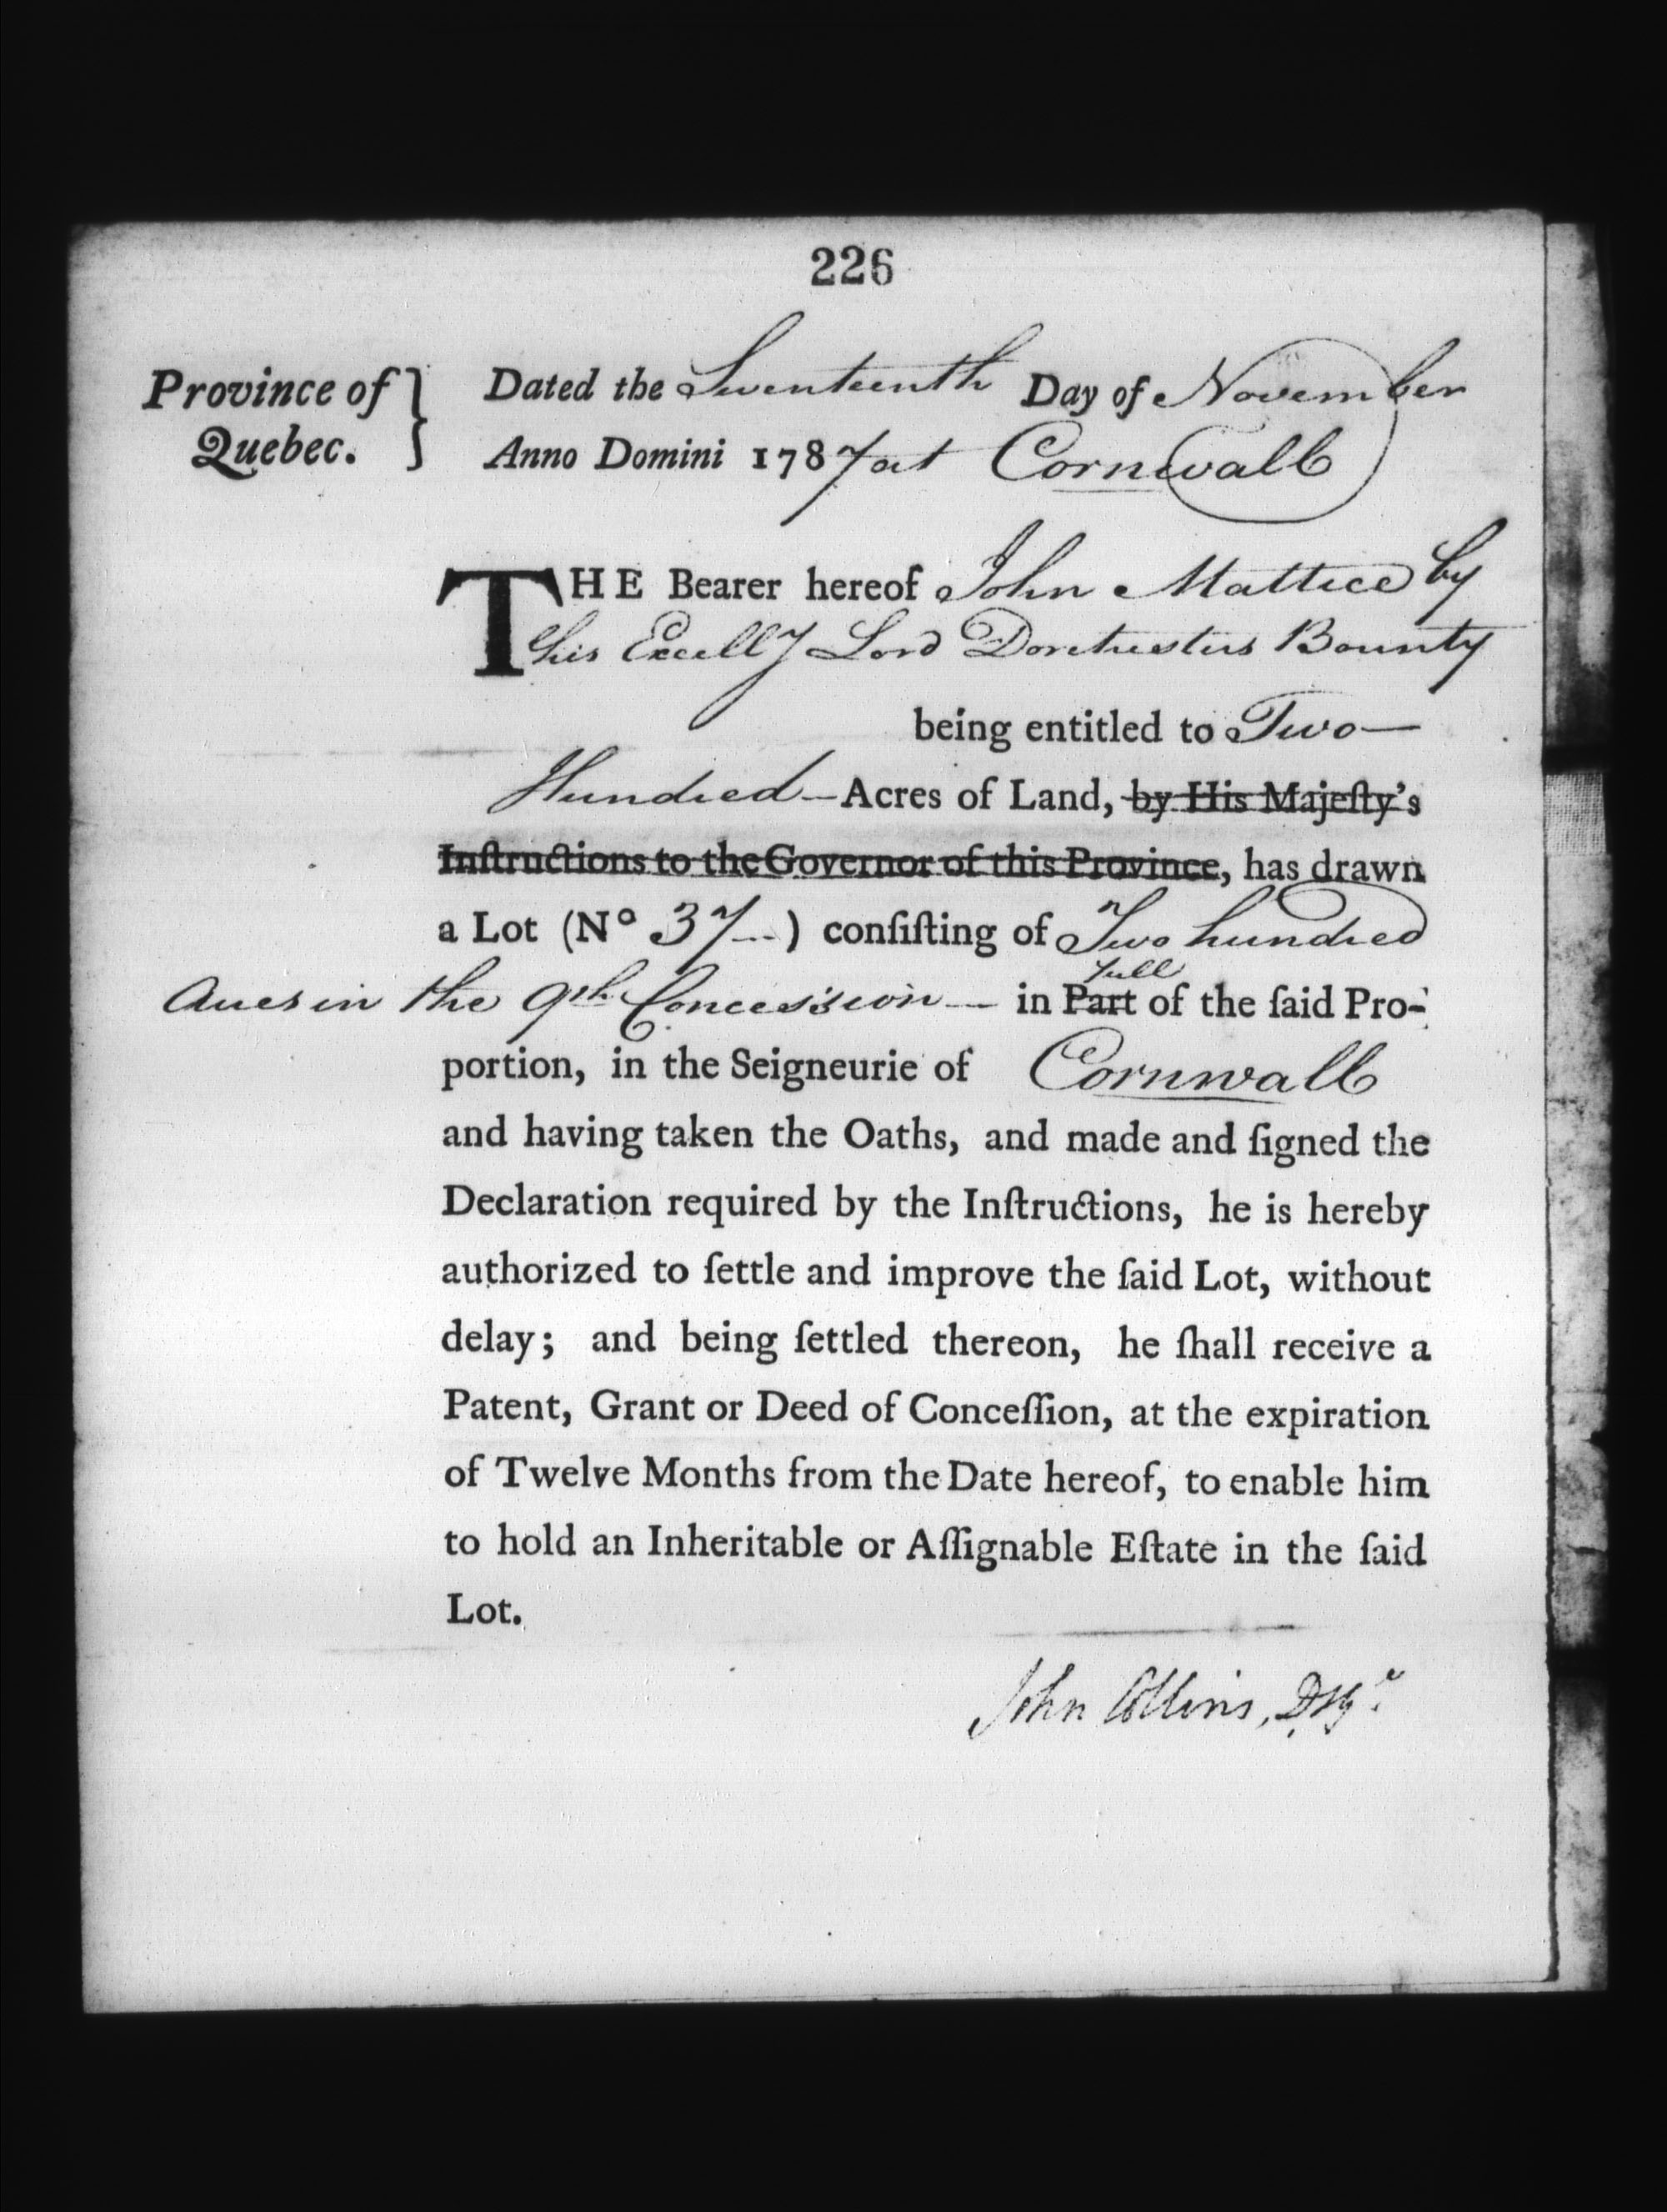 226
Province of Quebec.
Dated the Seventeenth Day of November
Anno Domini 1787 at Cornwall
THE Bearer hereof John Mattice by
his Excelly Lord Dorchesters Bounty
being entitled to Two—
Hundred—Acres of Land, by His Majeſty's
Inſtructions to the Governor of this Province, has drawn
a Lot (No 37--) conſiſting of Two hundred
full
Acres in the 9th Concession— in Part of the ſaid Pro-
portion, in the Seigneurie of Cornwall
and having taken the Oaths, and made and ſigned the
Declaration required by the Inſtructions, he is hereby
authorized to ſettle and improve the ſaid Lot, without
delay; and being ſettled thereon, he ſhall receive a
Patent, Grant or Deed of Conceſſion, at the expiration
of Twelve Months from the Date hereof, to enable him
to hold an Inheritable or Aſſignable Eſtate in the ſaid
Lot.
John Collins,